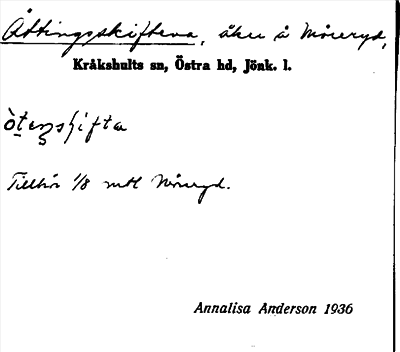 Åttingsskiftena, åker å Möreryd,
Kråkshults sn, Östra hd, Jönk. l.
Tillhör 1/8 mtl Möreryd.
Annalisa Anderson 1936